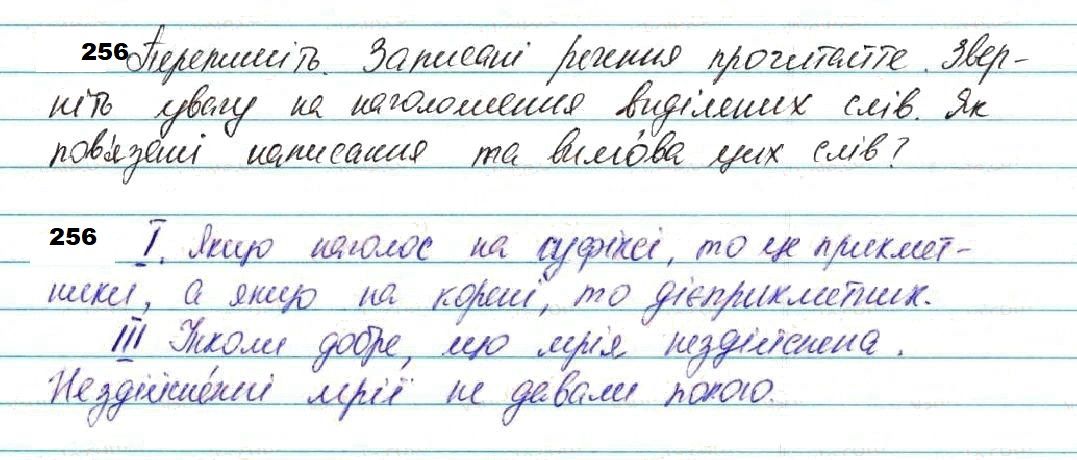 256 Перепишіть. Записані речення прочитайте. Звер-
ніть увагу на наголошення виділених слів. Як
пов'язані написання та вимо́ва цих слів?
256 I. Якщо наголос на суфіксі, то це прикмет-
ники, а якщо на корені, то дієприкметник.
III Інколи добре, що мрія нездійснена.
Нездійсне́нні мрії не давали покою.